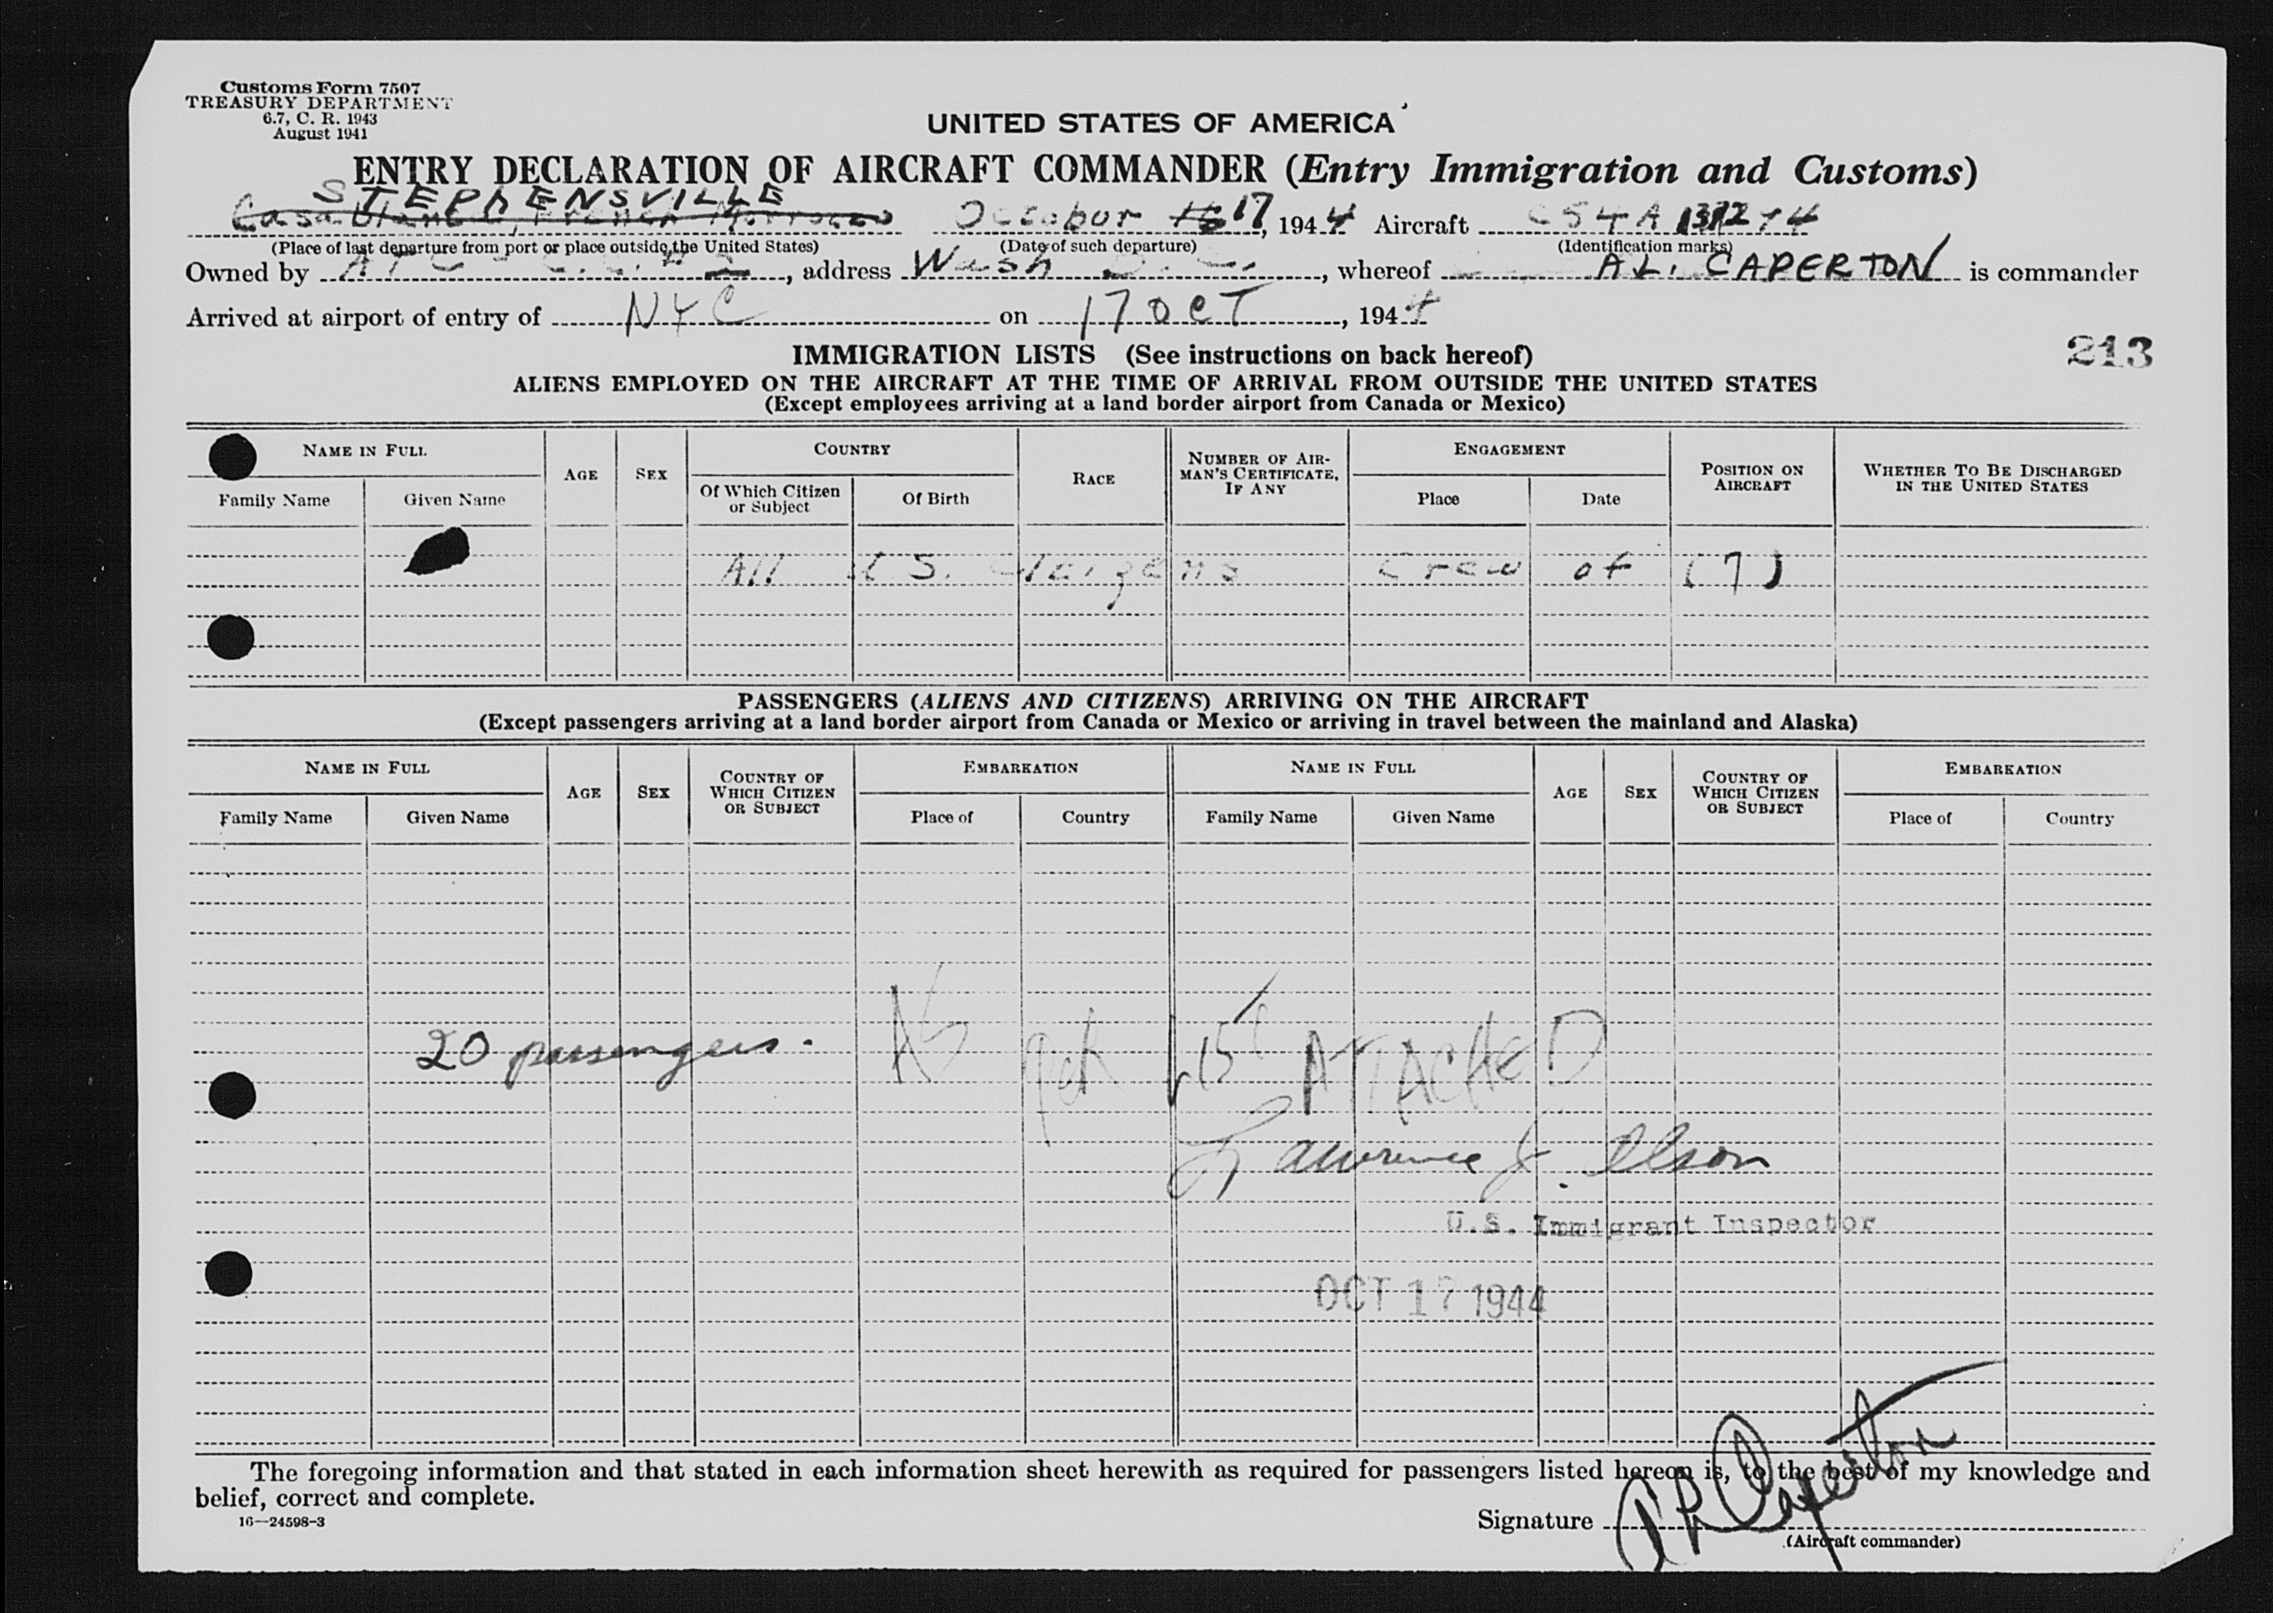 Customs Form 7507
TREASURY DEPARTMENT
6.7, C. R. 1943
August 1941
UNITED STATES OF AMERICA
ENTRY DECLARATION OF AIRCRAFT COMMANDER (Entry Immigration and Customs)
STEPhENSVILLE
Casablanca, French Morrocco October 16 17, 1944 Aircraft C54A
(Place of last departure from port or place outside the United States) (Date of such departure) (Identification marks)
Owned by ATC, address Wash D. C., whereof AL. CAPERTON is commander
Arrived at airport of entry of NYC on 17 OCT, 1944
213
IMMIGRATION LISTS (See instructions on back hereof)
ALIENS EMPLOYED ON THE AIRCRAFT AT THE TIME OF ARRIVAL FROM OUTSIDE THE UNITED STATES
(Except employees arriving at a land border airport from Canada or Mexico)
NAME IN FULL AGE SEX COUNTRY RACE NUMBER OF AIRMAN'S CERTIFICATE, IF ANY ENGAGEMENT POSITION ON AIRCRAFT WHETHER TO BE DISCHARGED IN THE UNITED STATES
Family Name Given Name Of Which Citizen or Subject Of Birth Place Date
All U S. Citizens Crew of (7)
PASSENGERS (ALIENS AND CITIZENS) ARRIVING ON THE AIRCRAFT
(Except passengers arriving at a land border airport from Canada or Mexico or arriving in travel between the mainland and Alaska)
NAME IN FULL AGE SEX COUNTRY OF WHICH CITIZEN OR SUBJECT EMBARKATION NAME IN FULL AGE SEX COUNTRY OF WHICH CITIZEN OR SUBJECT EMBARKATION
Family Name Given Name Place of Country Family Name Given Name Place of Country
20 passengers. AS PER LIST ATTACHED
Lawrence J. Olson
U.S. Immigrant Inspector
OCT 17 1944
The foregoing information and that stated in each information sheet herewith as required for passengers listed hereon is, to the best of my knowledge and
belief, correct and complete.
16—24598-3
Signature A L Caperton
(Aircraft commander)